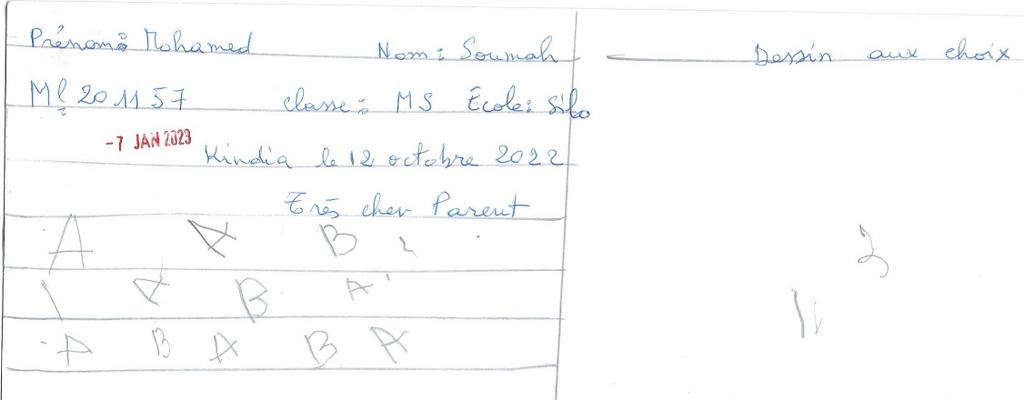 Prénom: Mohamed Nom: Soumah
Ml 201157 classe: MS École: Silo
-7 JAN 2023
Kindia le 12 octobre 2022
Très cher Parent
A A B
A B A
A B A B A
Dessin aux choix